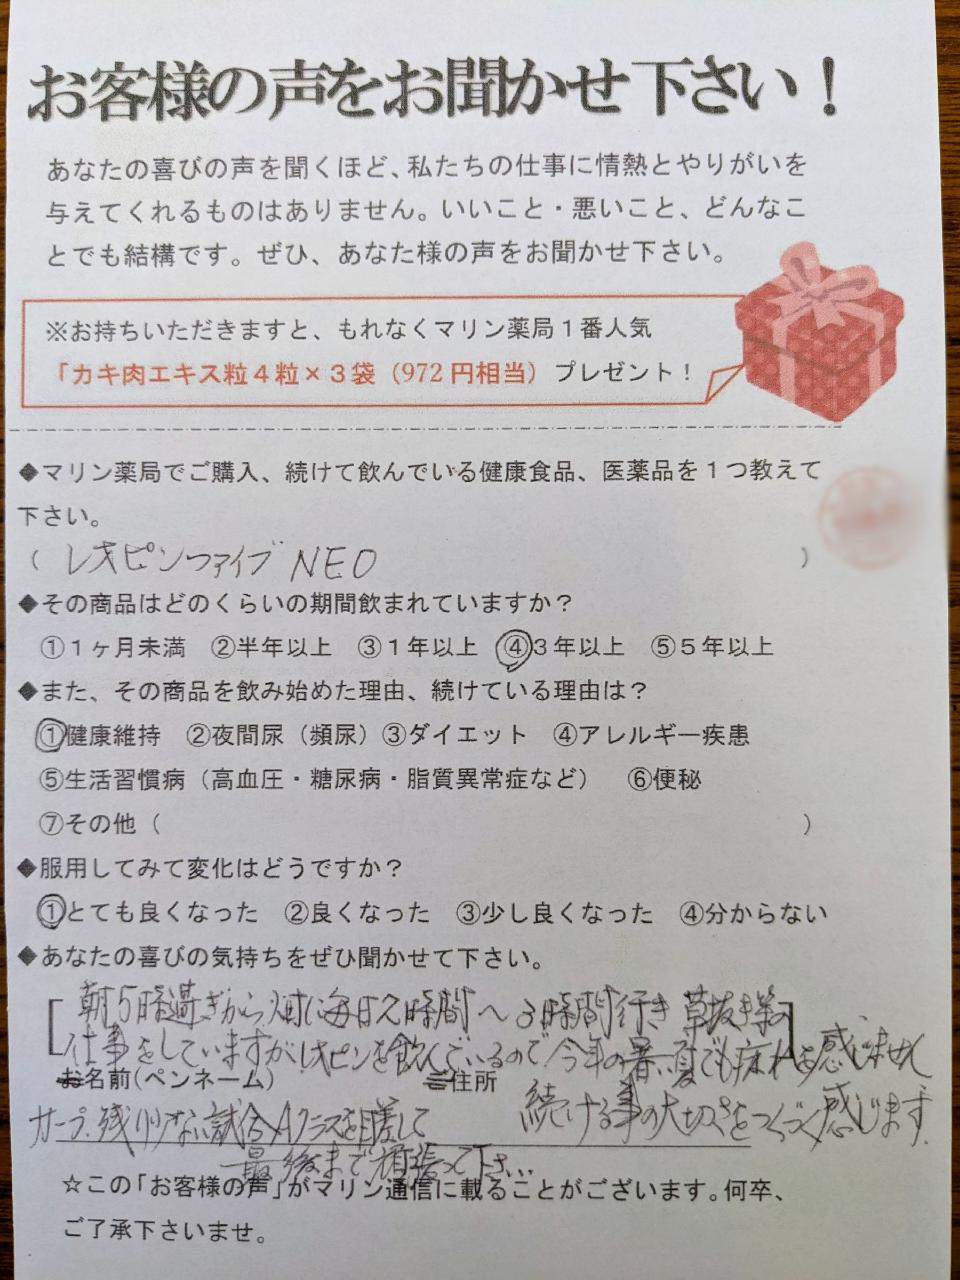 お客様の声をお聞かせ下さい！
あなたの喜びの声を聞くほど、私たちの仕事に情熱とやりがいを
与えてくれるものはありません。いいこと・悪いこと、どんなこ
とでも結構です。ぜひ、あなた様の声をお聞かせ下さい。
※お持ちいただきますと、もれなくマリン薬局１番人気
「カキ肉エキス粒４粒×３袋（972円相当）プレゼント！
◆マリン薬局でご購入、続けて飲んでいる健康食品、医薬品を１つ教えて
下さい。
（ レオピンファイブ NEO ）
◆その商品はどのくらいの期間飲まれていますか？
①１ヶ月未満 ②半年以上 ③１年以上 ④３年以上 ⑤５年以上
◆また、その商品を飲み始めた理由、続けている理由は？
①健康維持 ②夜間尿（頻尿）③ダイエット ④アレルギー疾患
⑤生活習慣病（高血圧・糖尿病・脂質異常症など） ⑥便秘
⑦その他（ ）
◆服用してみて変化はどうですか？
①とても良くなった ②良くなった ③少し良くなった ④分からない
◆あなたの喜びの気持ちをぜひ聞かせて下さい。
朝5時過ぎから畑に毎日2時間〜3時間行き草抜き等の
仕事をしていますがレオピンを飲んでいるので今年の暑い夏でも疲れを感じません
お名前（ペンネーム） ご住所
続ける事の大切さをつくづく感じます.
カープ.残り少ない試合Aクラスを目差して
最後まで頑張って下さい…
☆この「お客様の声」がマリン通信に載ることがございます。何卒、
ご了承下さいませ。